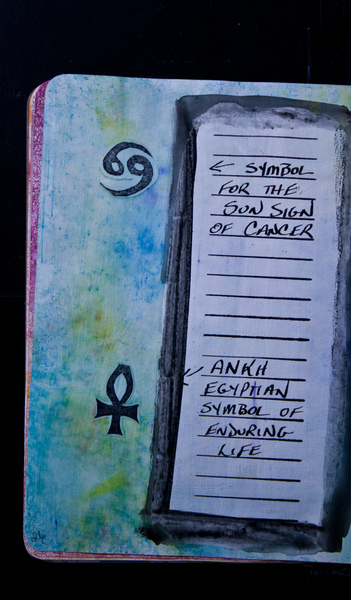 ← SYMBOL
FOR THE
SUN SIGN
OF CANCER
ANKH
EGYPTIAN
SYMBOL OF
ENDURING
LIFE